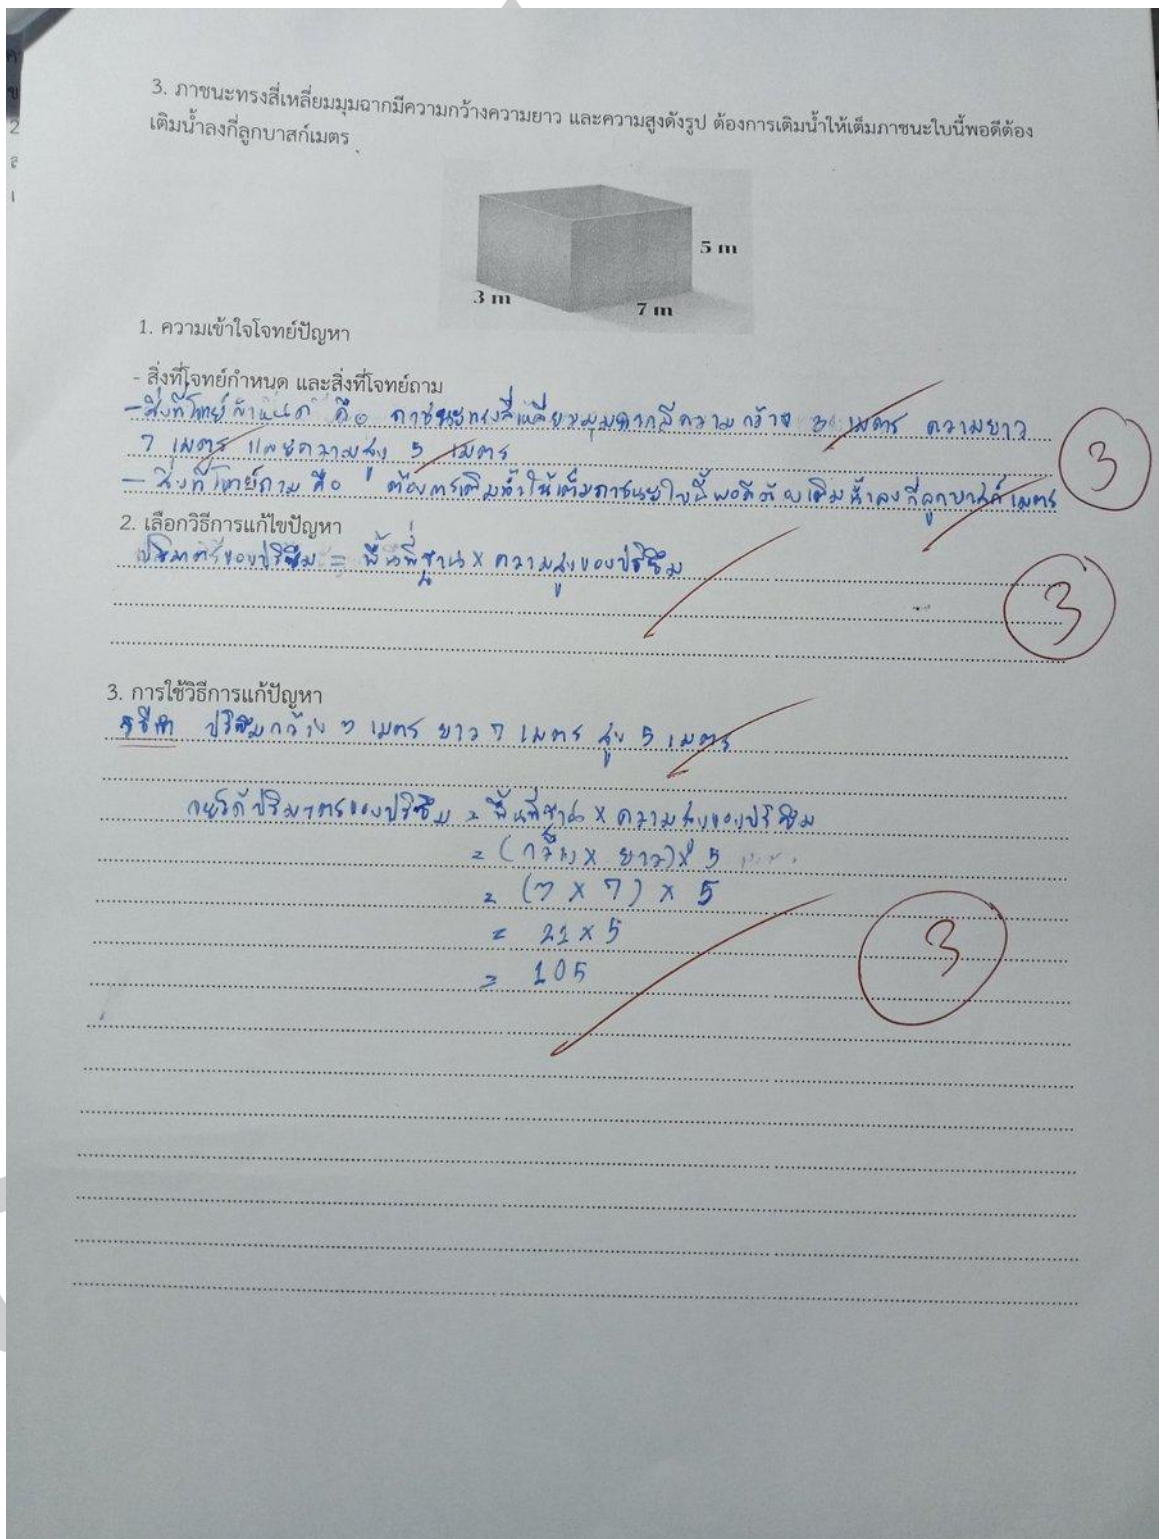 3. ภาชนะทรงสี่เหลี่ยมมุมฉากมีความกว้างความยาว และความสูงดังรูป ต้องการเติมน้ำให้เต็มภาชนะใบนี้พอดีต้อง
เติมน้ำลงกี่ลูกบาสก์เมตร
5 m
3 m
7 m
1. ความเข้าใจโจทย์ปัญหา
- สิ่งที่โจทย์กำหนด และสิ่งที่โจทย์ถาม
- สิ่งที่โจทย์กำหนด คือ ภาชนะทรงสี่เหลี่ยมมุมฉากมีความกว้าง 3 เมตร ความยาว
7 เมตร และความสูง 5 เมตร
3
- สิ่งที่โจทย์ถาม คือ ต้องการเติมน้ำให้เต็มภาชนะใบนี้พอดีต้องเติมน้ำลงกี่ลูกบาสก์เมตร
2. เลือกวิธีการแก้ไขปัญหา
ปริมาตรของปริซึม = พื้นที่ฐาน x ความสูงของปริซึม
3
3. การใช้วิธีการแก้ปัญหา
วิธีทำ ปริซึมกว้าง 3 เมตร ยาว 7 เมตร สูง 5 เมตร
จะได้ปริมาตรของปริซึม = พื้นที่ฐาน x ความสูงของปริซึม
= (กว้าง x ยาว) x 5
= (3 x 7) x 5
= 21 x 5
3
= 105